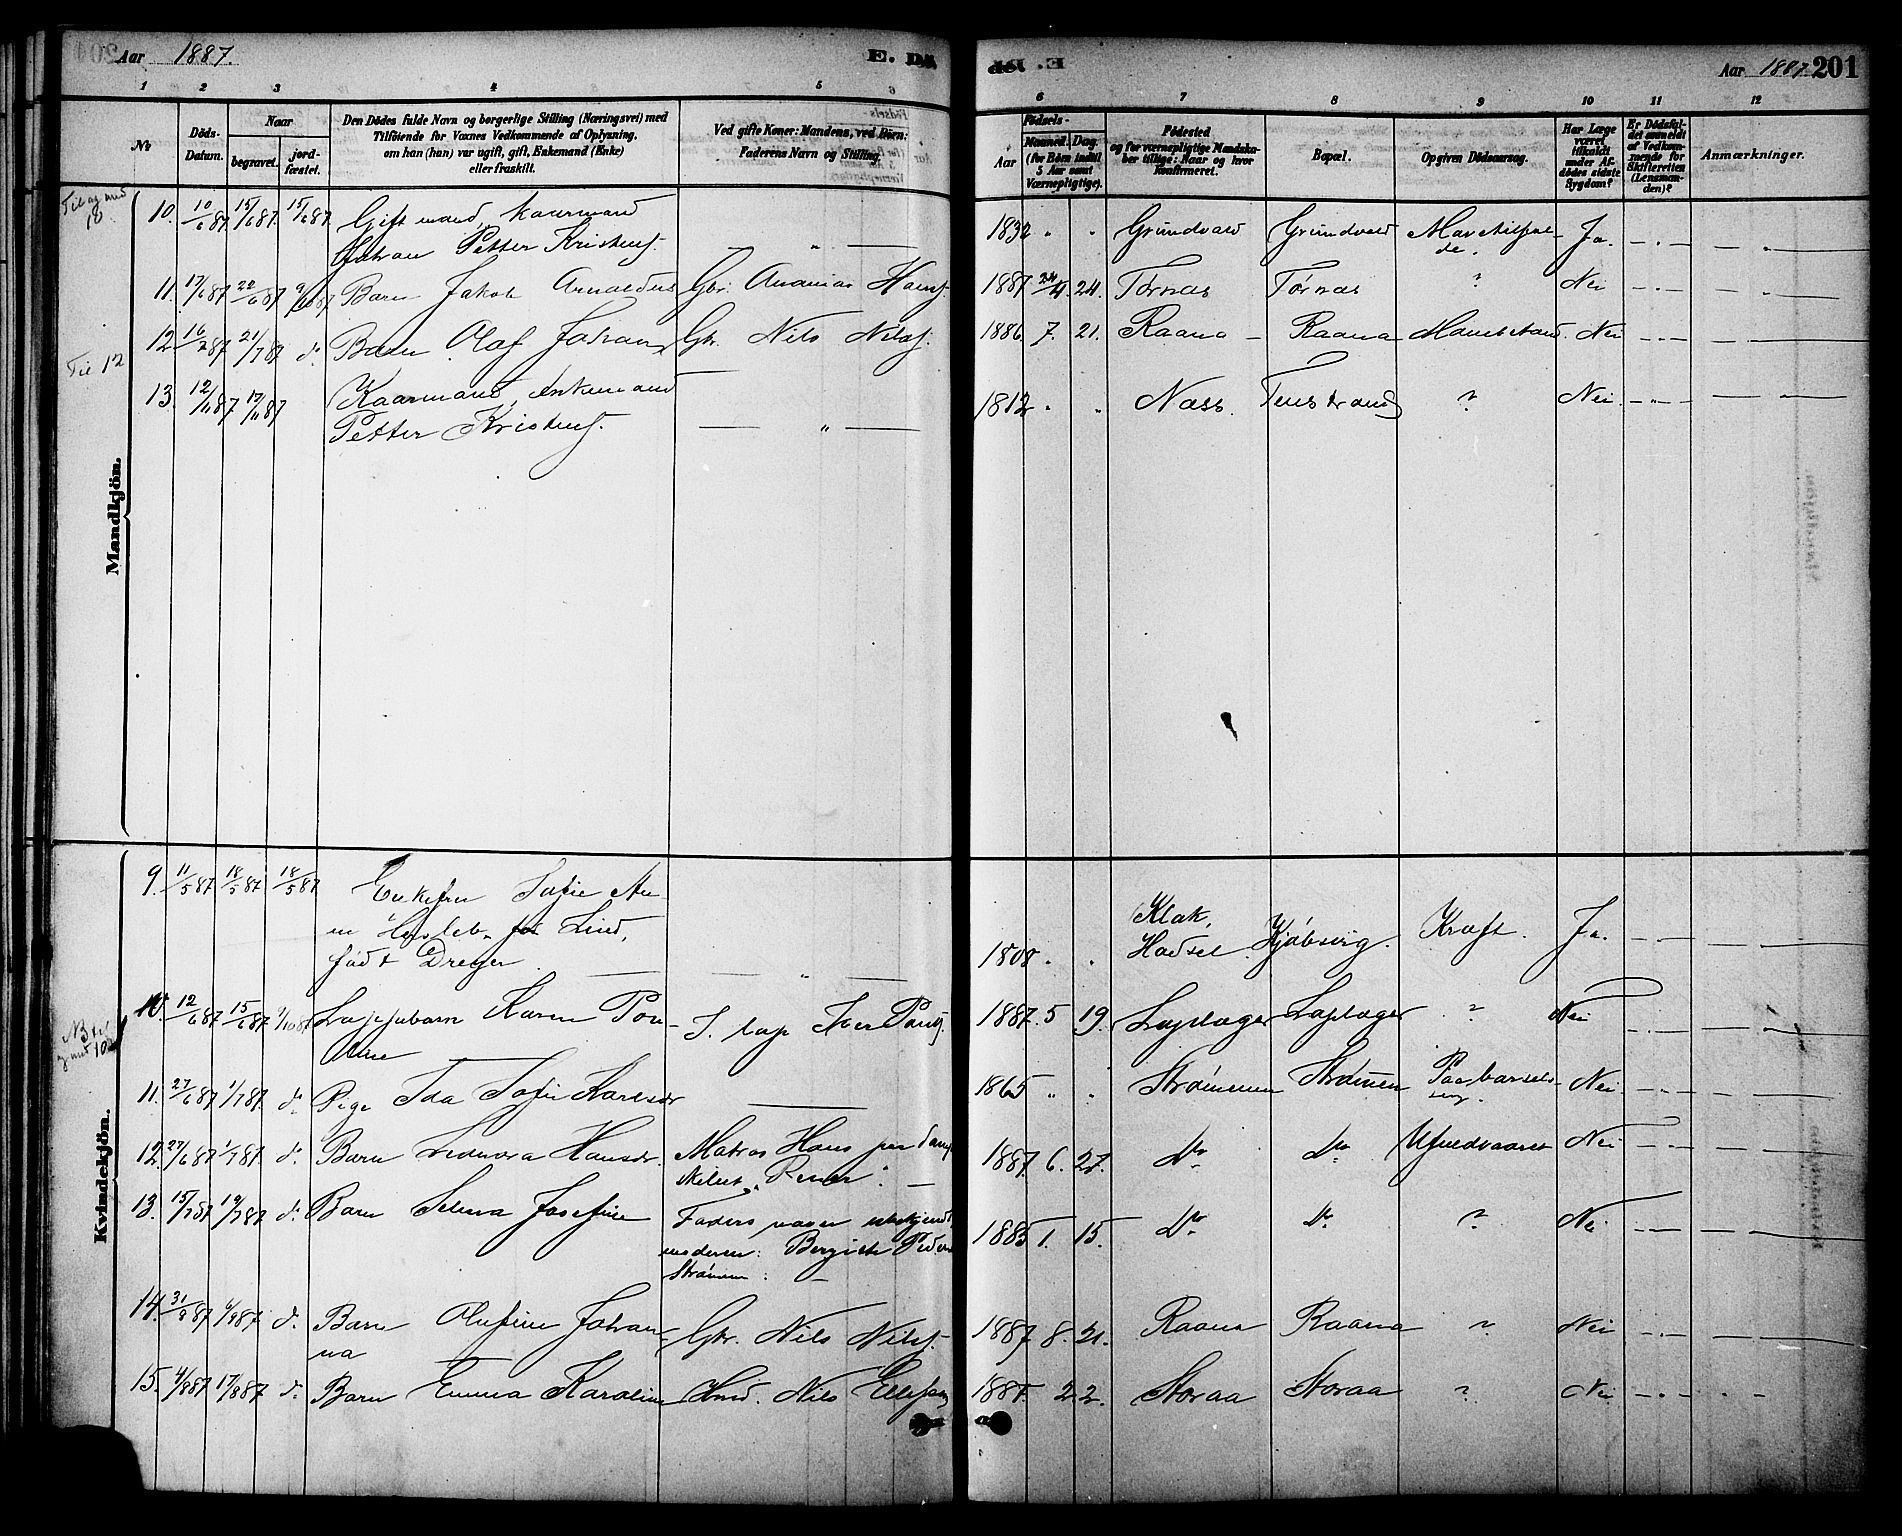 Aar 1887. E. Dö
1 2 3 4 5 6
No
Döds-Datum.
Naar
begravet. jordfæstet.
Den Dödes fulde Navn og borgerlige Stilling (Næringsvei) med
Tilföiende for Voxnes Vedkommende af Oplysning,
om han (hun) var ugift, gift, Enkemand (Enke)
eller fraskilt.
Ved gifte Koner: Mandens, ved Börn:
Faderens Navn og Stilling.
Til og med
Mandkjön.
10. 10/6 87 15/6 87 15/6 87 Gift mand, kaarmand
Johan Petter Kristens. — " —
11. 17/6 87 22/6 87 Barn Jakob Arnoldus Gbr. Ananias Hans.
12 21/7 87 d° Barn Olaf Johan Gbr. Nils Nils.
Til 12
13. 12/11 87 17/11 87 Kaarmand, Enkemand
Petter Kristens. — " —
Kvindekjön.
9. 11/5 87 18/5 87 18/5 87 Enkefru Sofie An-
ne Hersleb Lind,
född Dreyer. — " —
10. 12/6 87 15/6 87 Lappebarn Karen Pou-
line S. lap Iver Pouls.
11. 27/6 87 1/7 87. d° Pige Ida Sofie Karlsdr —
12. 27/6 87 1/7 87. d° Barn Hansdr. Matros Hans paa damp
skibet "Renen". —
13. 15/7 87 19/7 87 d° Barn Selma Josefine Faders navn ubekjendt,
moderen: Bergithe Peders
Strömmen. —
14. 31/8 87 6/9 87 d° Barn Olufine Johan-
na Gbr. Nils Nils.
15. 17/8 87 d° Barn Emma Karoline Nils Ellefsen
Aar 1887. 201
6 7 8 9 10 11 12
Födsels-
Aar Maaned. Dag.
(for Börn indtil
5 Aar samt
Værnepligtige).
Födested
og for værnepligtige Mandska-
ber tillige: Naar og hvor
konfirmeret.
Bopæl.
Opgiven Dödsaarsag.
Har Læge
været
tilkaldt
under Af-
dödes sidste
Sygdom?
Er Dödsfal-
det anmeldt
af Vedkom-
mende for
Skifteretten
(Lensman-
den)?
Anmærkninger.
1832 " " Grundvald Grundvald Ja.
1887 24/4. 24. Tørnæs Tørnæs ? Nei
1886. 7. 21. Raana Raana Nei
1812 " " Næss. ? Nei.
1808 " " Klak,
Hadsel. Kjøbsvig. Kræft. Ja.
1887. 5 19. Laplæger Laplæger ? Nei
1865 " " Strömmen Strömmen Paa barsel-
seng. Nei
1887. 6. 27. d° d° Ufuldbaaret Nei
1885 1. 15. d° d° ? Nei
1887 8. 21. Raana Raana ? Nei
1887. 2. 2. Storaa Storaa ? Nei